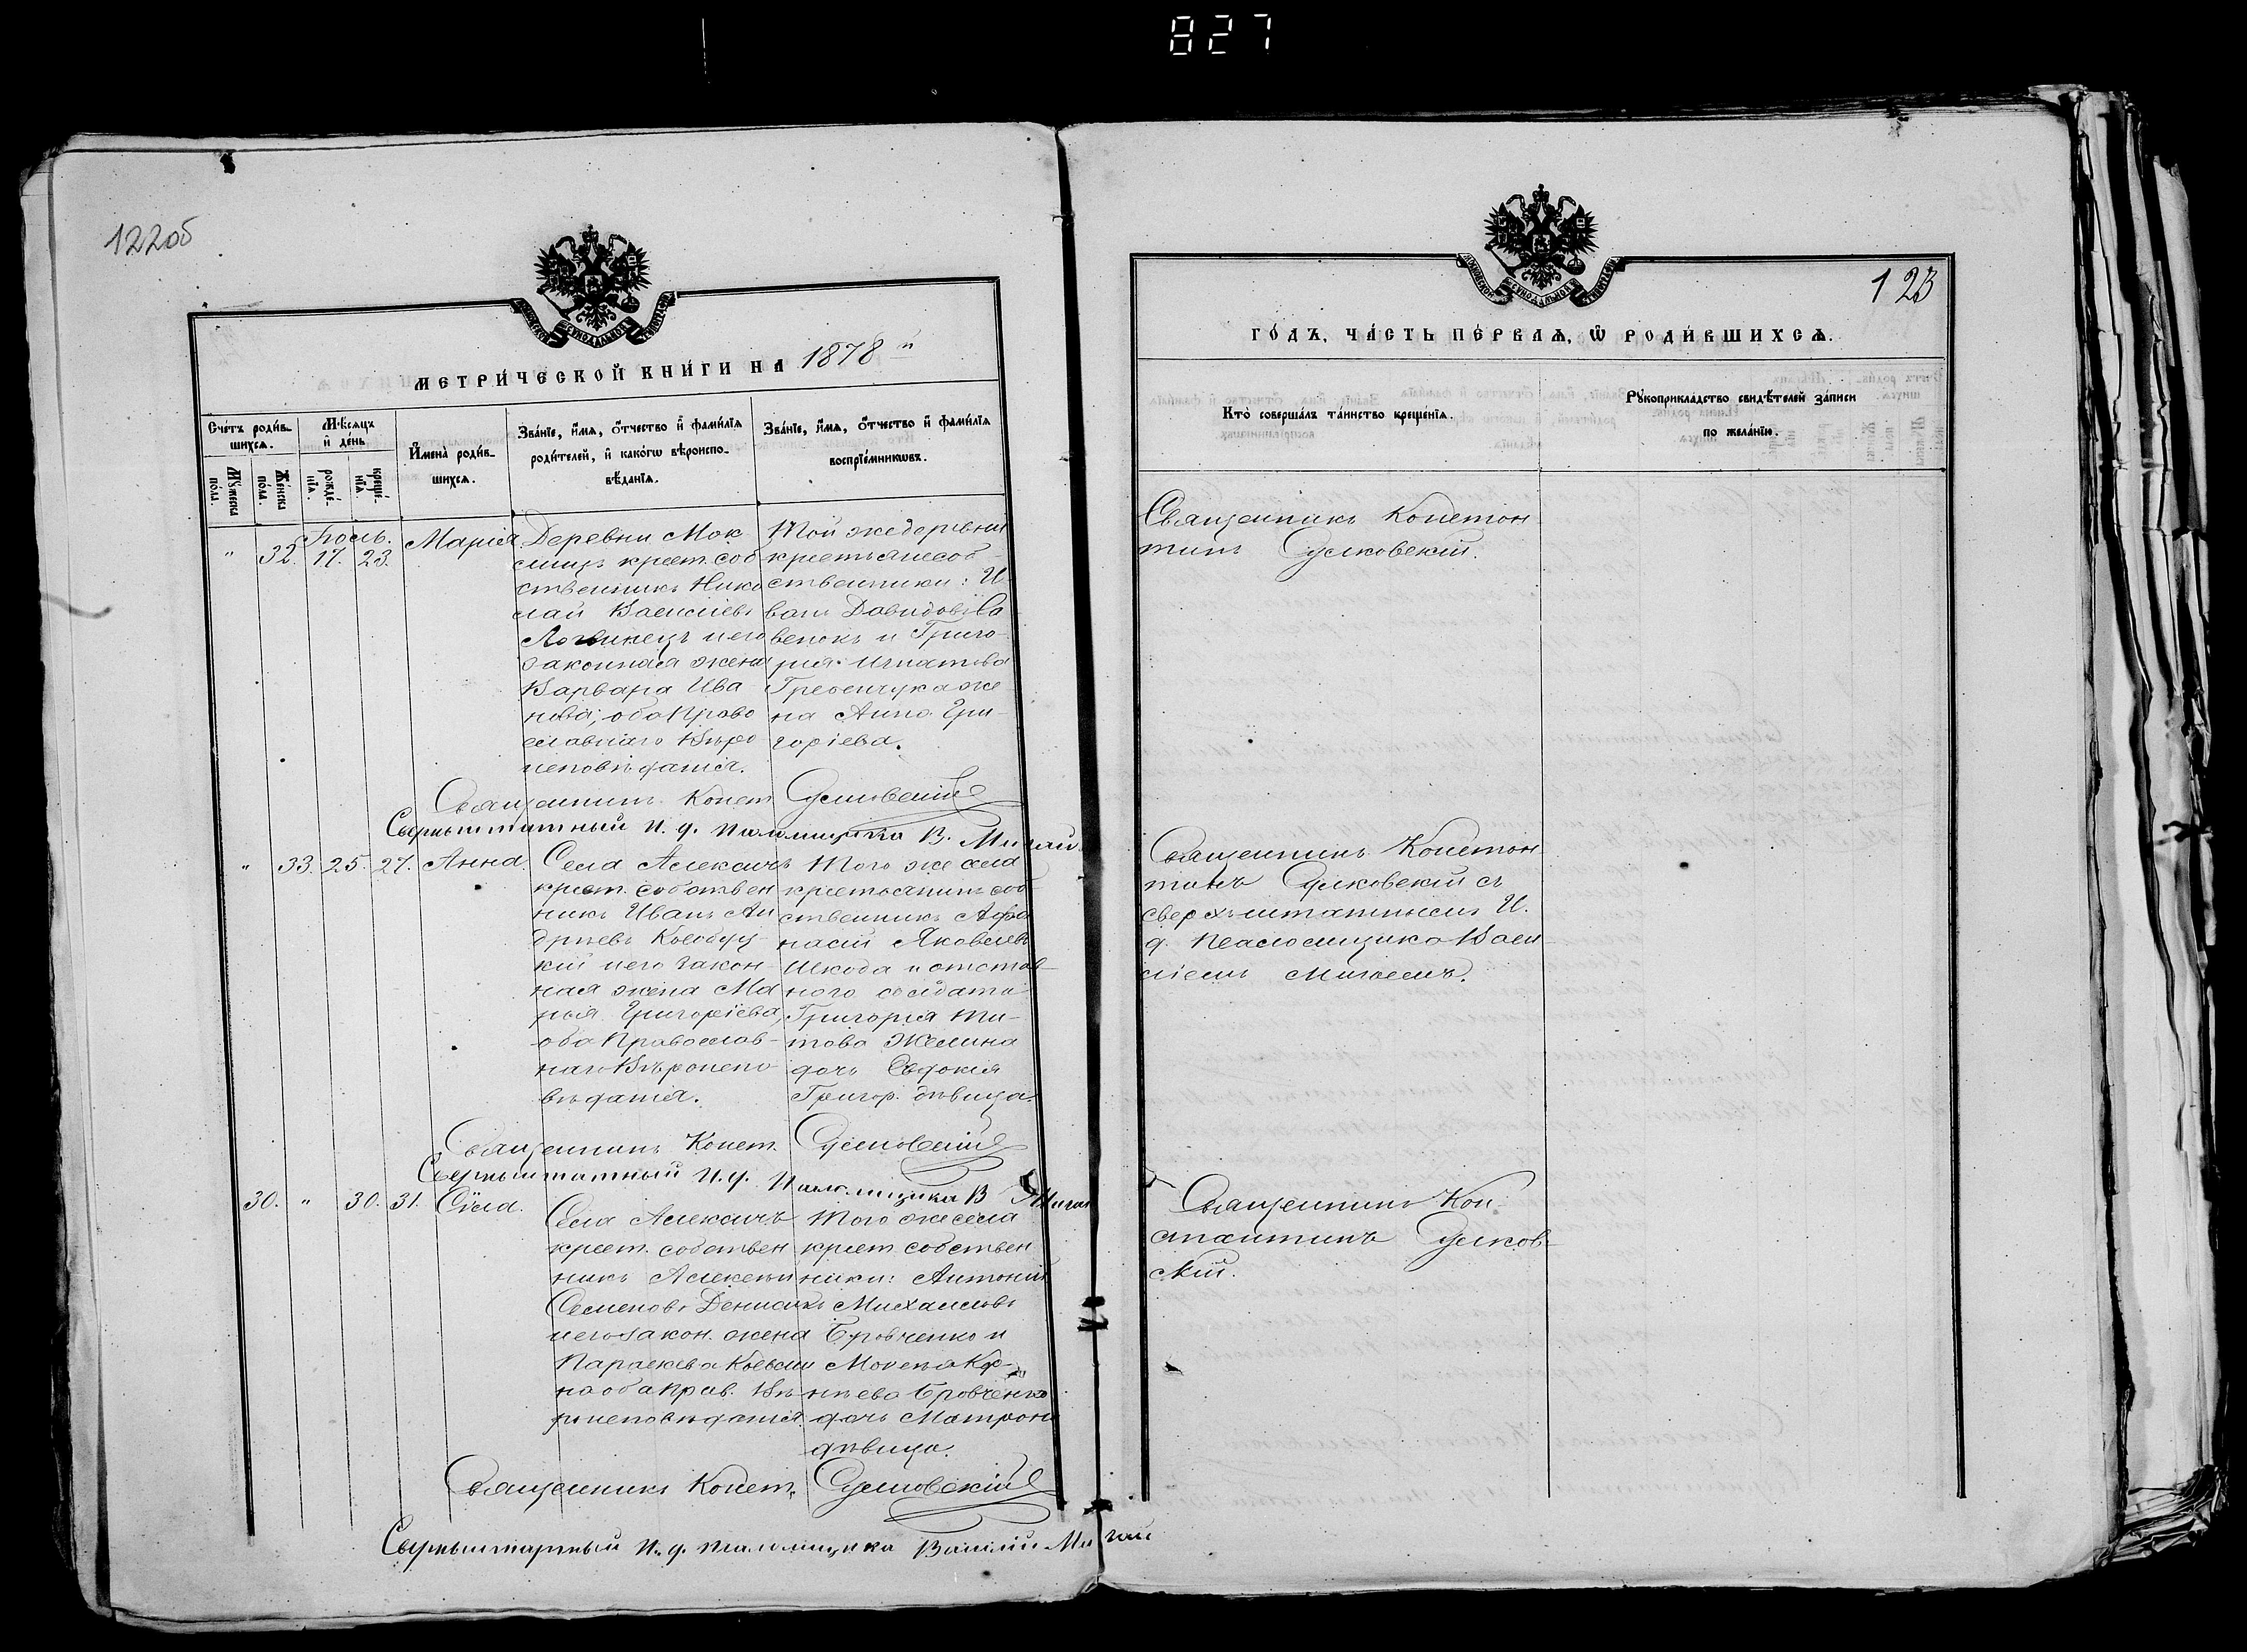 827
122об
МЕТРИ́ЧЕСКОЙ КНИ́ГИ НА 1878
Сче́тъ роди́в-
шихсѧ.
Мѣ́сѧцъ
и҆ де́нь
И҆мена̀ роди́в-
шихсѧ.
Зва́нїе, и҆́мѧ, ѻ҆́тчество и҆ фами́лїѧ
роди́телей, и҆ како́гѡ вѣроиспо-
вѣ́данїѧ.
Зва́нїе, и҆́мѧ, ѻ҆́тчество и҆ фами́лїѧ
воспрїе́мникѡвъ.
Мꙋ́жеска
по́ла.
Же́нска
по́ла.
рожде́-
нїѧ.
креще́-
нїѧ.
" 32. 17. 23. Марія
Деревни Мок
крест. соб
ственникъ Нико
лай Васильевъ
и его
законная жена
Варвара Ива
нова; оба Право
славнаго Вѣро
исповѣданія.
Той же деревни
крестьяне соб-
ственники: И-
ванъ Давидовъ Са
венокъ и Григо-
рія Игнатова
Гребенчука же
на Анна Гри-
горіева.
Священникъ Конст. Сулковскій
Сверхштатный И. д. Псаломщика В. Мигай
" 33. 25. 27. Анна.
Села Алексичъ
крест. собствен
никъ Иванъ Ан
дреевъ
кій и его закон-
ная жена Ма
рья Григоріева,
оба Православ-
наго Вѣроиспо
вѣданія.
Того же села
крестьянинъ соб-
ственникъ Афа
насій Яковлевъ
Шкода и отстав-
ного солдата
Григорія Ти-
това Желина
дочь Евдокія
Григор. дѣвица.
Священникъ Конст. Сулковскій
Сверхштатный И. д. Псаломщика В. Мигай
30. " 30. 31. Сѵла.
Села Алексичъ
крест. собствен
никъ Алексѣй
Семеновъ Денисикъ
и его закон. жена
Параскева
на оба Прав. Вѣ-
роисповѣданія.
Того же села
крест. собствен
ники: Антоній
Михаиловъ
Бровченко и
нѣева Бровченка
дочь Матрона
дѣвица.
Священникъ Конст. Сулковскій
Сверхштатный И. д. псаломщика Василій Мигай
123
ГО́ДЪ, ЧА́СТЬ ПЕ́РВАѦ, Ѡ҆ РОДИ́ВШИХСѦ.
Кто̀ соверша́лъ та́инство креще́нїѧ.
Рꙋкоприкла́дство свидѣ́телей за́писи
по жела́нїю.
Священникъ Констан
тинъ Сулковскій.
Священникъ Констан
тинъ Сулковскій съ
сверхъштатнымъ И.
д. Псаломщика Васи-
ліемъ Мигаемъ.
Священникъ Кон-
стантинъ Сулков-
скій.